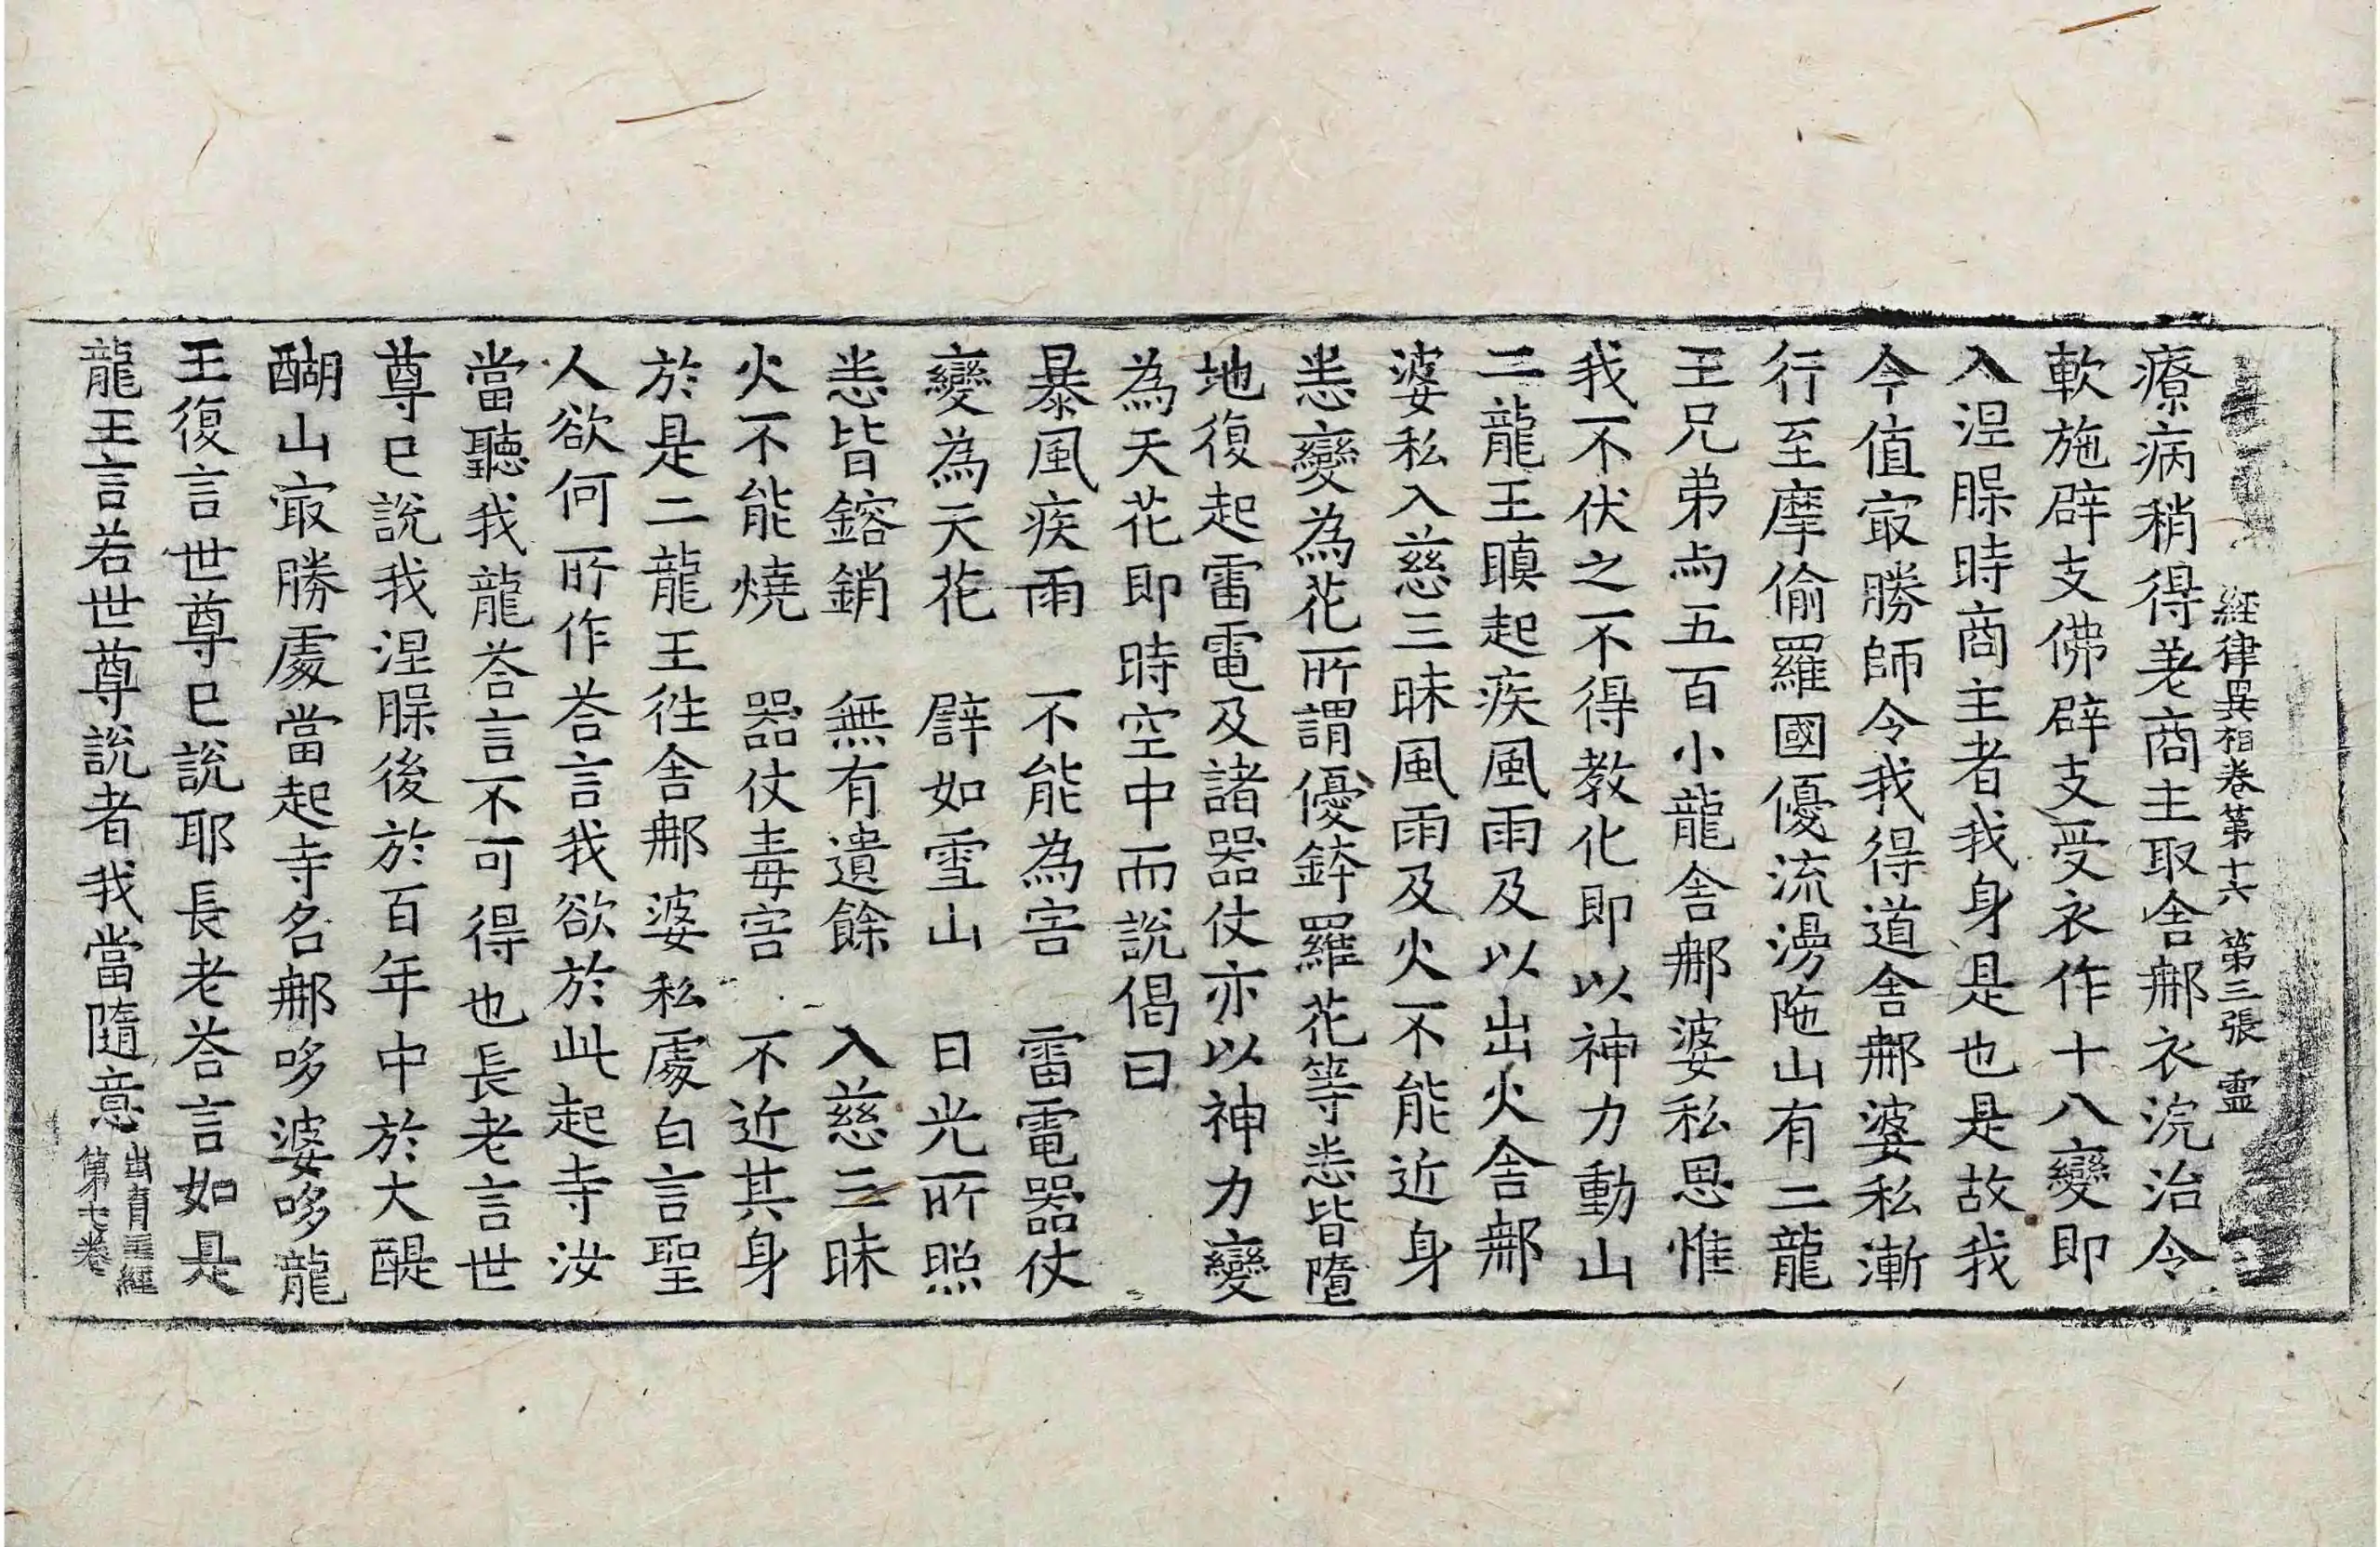 經律異相卷第十六 第三張 靈
療病稍得差商主取舍那衣浣治令
軟施辟支佛辟支受衣作十八變即
入涅槃時商主者我身是也是故我
今值㝡勝師令我得道舍那婆私漸
行至摩偷羅國優流漫陁山有二龍
王兄弟与五百小龍舍那婆私思惟
我不伏之不得教化即以神力動山
二龍王瞋起疾風雨及以出火舍那
婆私入慈三昧風雨及火不能近身
悉變為花所謂優鉢羅花等悉皆墮
地復起雷電及諸器仗亦以神力變
為天花即時空中而說偈曰
暴風疾雨　不能為害　雷電器仗
變為天花　辟如雪山　日光所照
悉皆鎔銷　無有遺餘　入慈三昧
火不能燒　器仗毒害　不近其身
於是二龍王徃舍那婆私處白言聖
人欲何所作荅言我欲於此起寺汝
當聽我龍荅言不可得也長老言世
尊已說我涅槃後於百年中於大醍
醐山㝡勝處當起寺名那哆婆哆龍
王復言世尊已說耶長老荅言如是
龍王言若世尊說者我當隨意出育王經第七卷